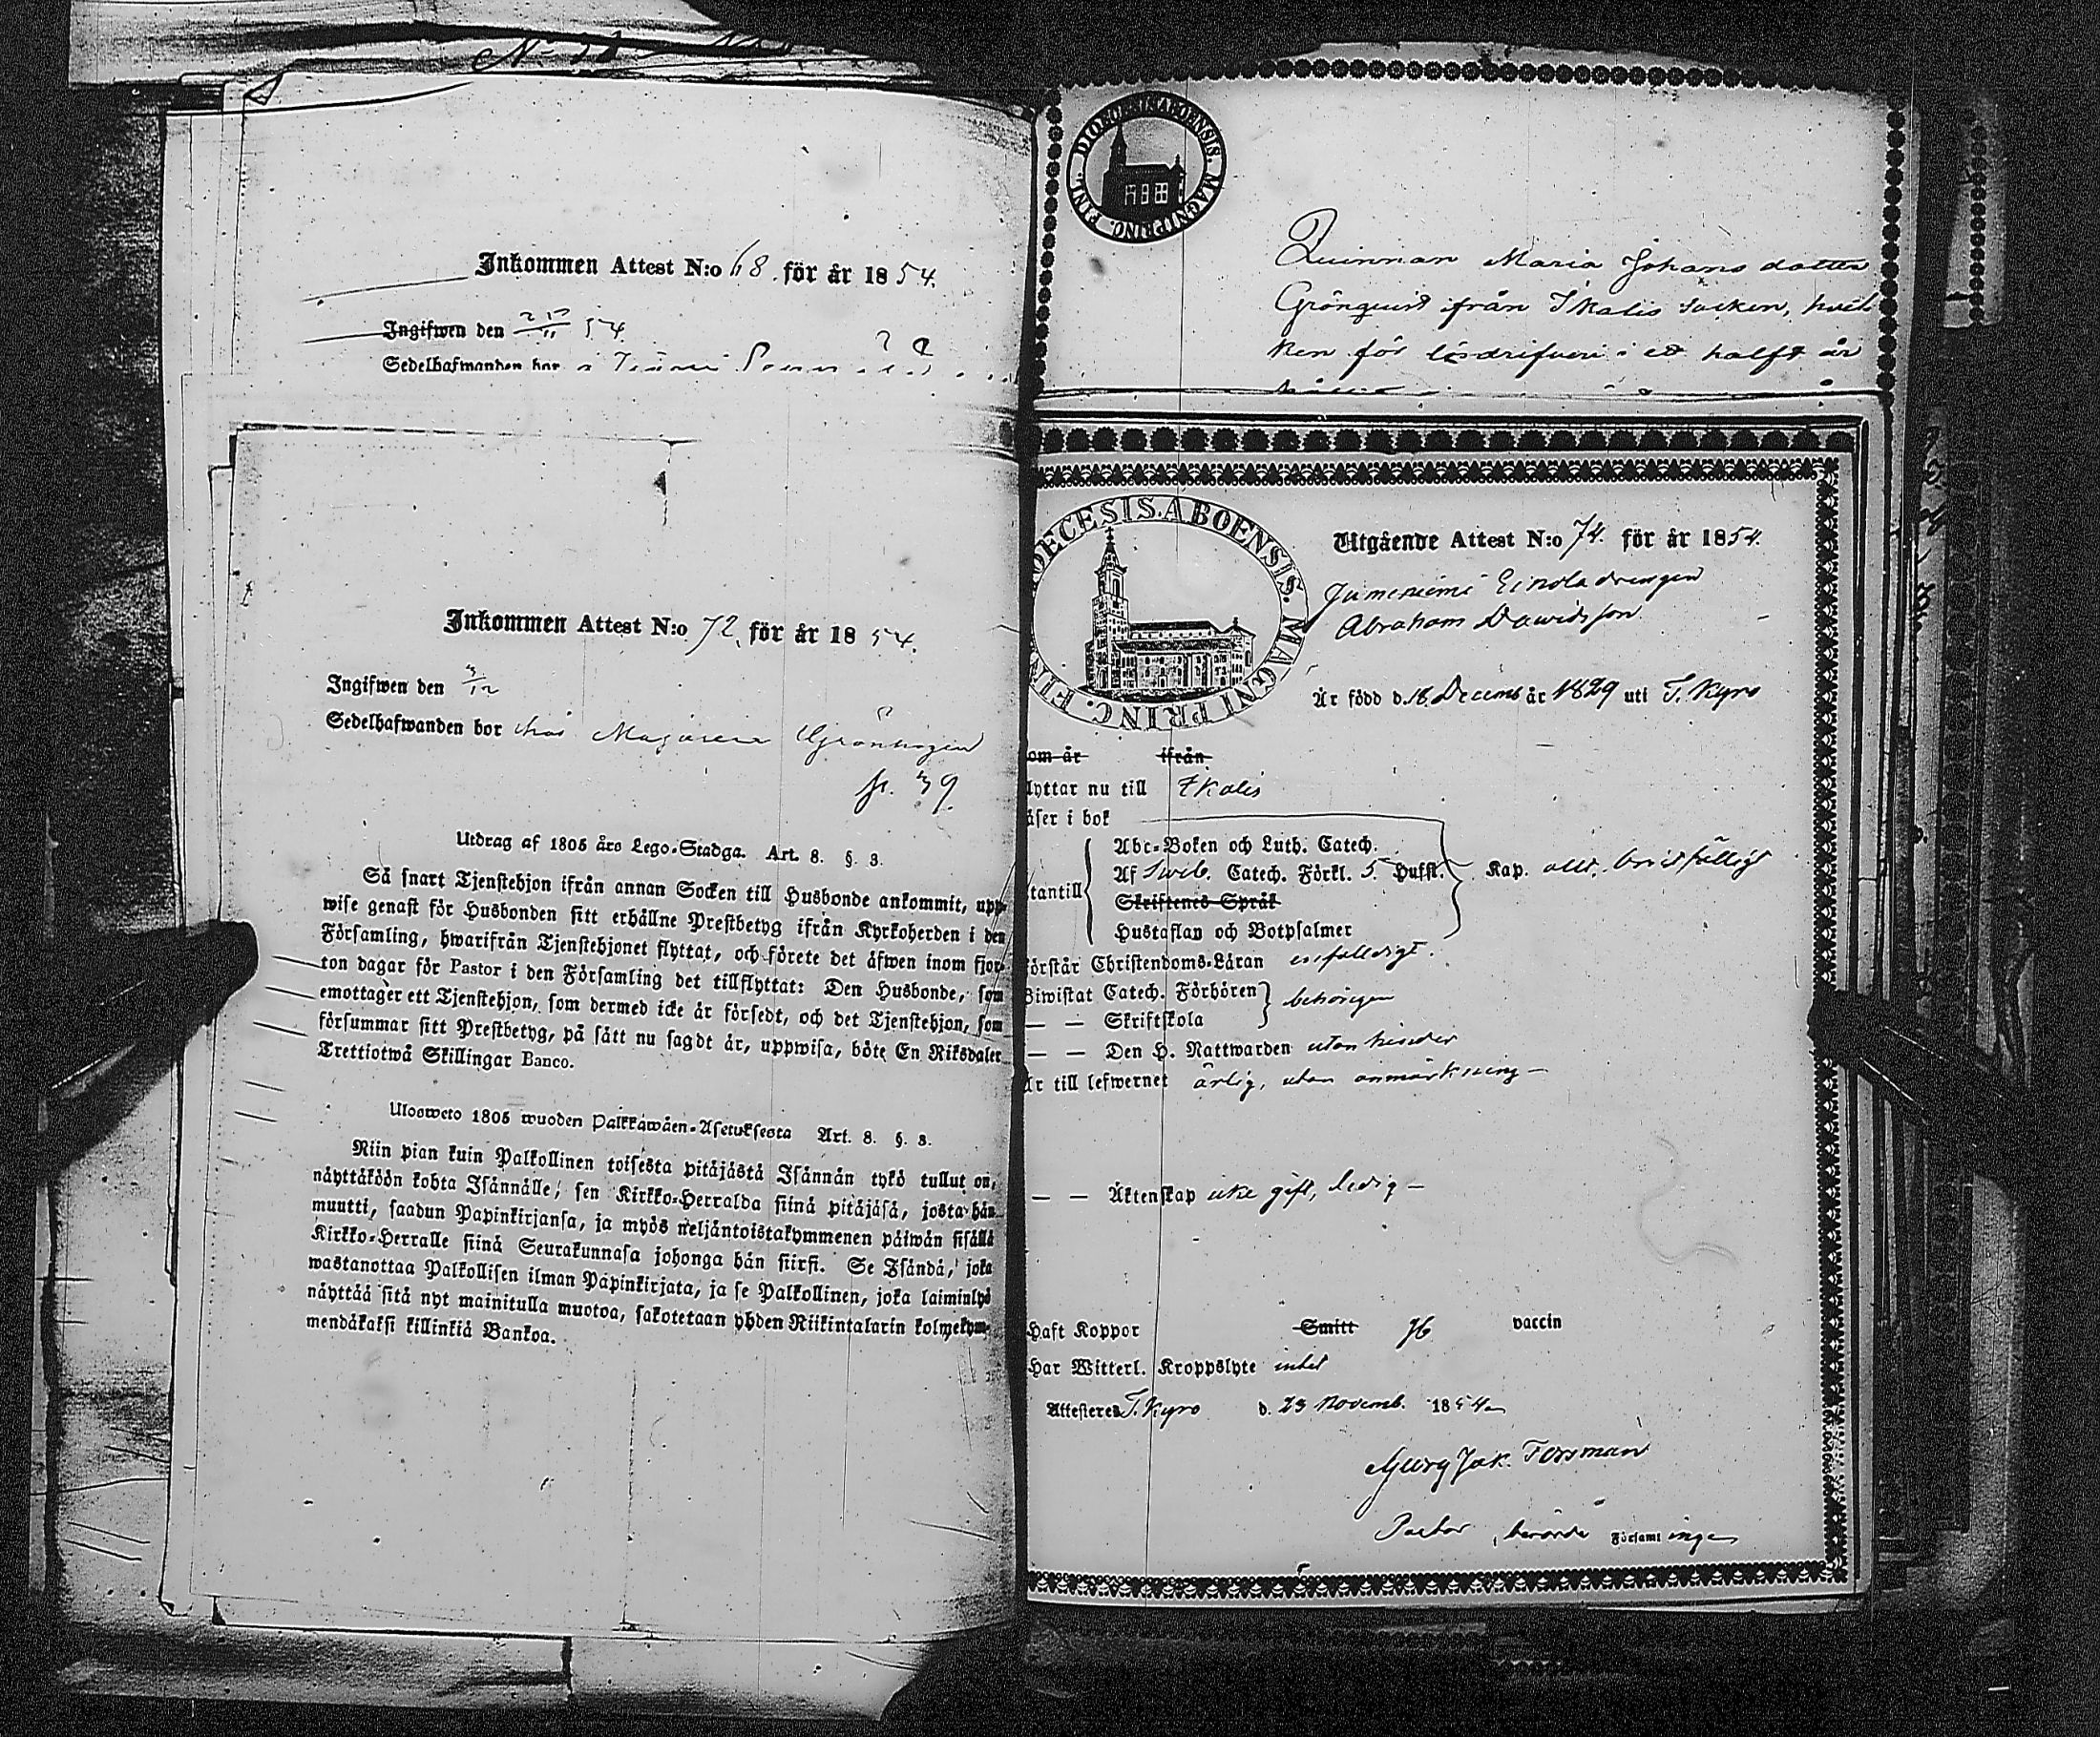 Inkommen Attest N:o 68. för år 1854.
Ingifwen den 25/11 54.
Sedelhafwanden bor
Inkommen Attest N:o 72. för år 1854.
Ingifwen den 3/12
Sedelhafwanden bor hos
p. 39
Utdrag af 1805 års Lego-Stadga. Art. 8. §. 3.
Så snart Tjenstehjon ifrån annan Socken till Husbonde ankommit, upp-
wise genast för Husbonden sitt erhållne Prestbetyg ifrån Kyrkoherden i den
Församling, hwarifrån Tjenstehjonet flyttat, och förete det äfwen inom fjor-
ton dagar för Pastor i den Församling det tillflyttat: Den Husbonde, som
emottager ett Tjenstehjon, som dermed icke är försedt, och det Tjenstehjon, som
försummar sitt Prestbetyg, på sätt nu sagdt är, uppwisa, böte En Riksdaler
Trettiotwå Skillingar Banco.
Ulosweto 1805 wuoden Palkkawäen-Asetuksesta Art. 8. §. 3.
Niin pian kuin Palkollinen toisesta pitäjästä Isännän tykö tullut on,
näyttäköön kohta Isännälle, sen Kirkko-Herralda siinä pitäjäsä, josta hän
muutti, saadun Papinkirjansa, ja myös neljäntoistakymmenen päiwän sisällä
Kirkko-Herralle siinä Seurakunnasa johonga hän siirsi. Se Isändä, joka
wastanottaa Palkollisen ilman Papinkirjata, ja se Palkollinen, joka laiminlyö
näyttää sitä nyt mainitulla muotoa, sakotetaan yhden Riikintalarin kolmekym-
mendäkaksi killinkiä Bankoa.
DIOECESIS ABOENSIS. MAGNI PRINC. FINL.
Quinman Maria Johansdotter
Grönquist från Ikalis socken, hvil-
ken för lösdrifveri i ett halft år
OECESIS. ABOENSIS. MAGNI PRINC. FIN
Utgående Attest N:o 74. för år 1854.
Einola drengen
Abraham Dawidsson
Är född d. 18. Decemb år 1829 uti T. Kyro
om år ifrån
lyttar nu till Ikalis
äser i bok
Abc-Boken och Luth. Catech.
Af Sweb. Catech. Förkl. 5. Hufst.
tantill Skriftenes Språk Kap.
Hustaflan och Botpsalmer
örstår Christendoms-Läran enfalldigt.
Biwistat Catech. Förhören behörigen
— — Skriftskola
— — Den H. Nattwarden utan hinder
Är till lefwernet ärlig, utan anmärkning —
— — Äktenskap icke gift, ledig —
Haft Koppor Smitt vaccin
Har Witterl. Kroppslyte intet
Attesteras T. Kyro d. 23 Novemb. 1854
Georg Jak. Forssman
Pastor, berörde Församlingen